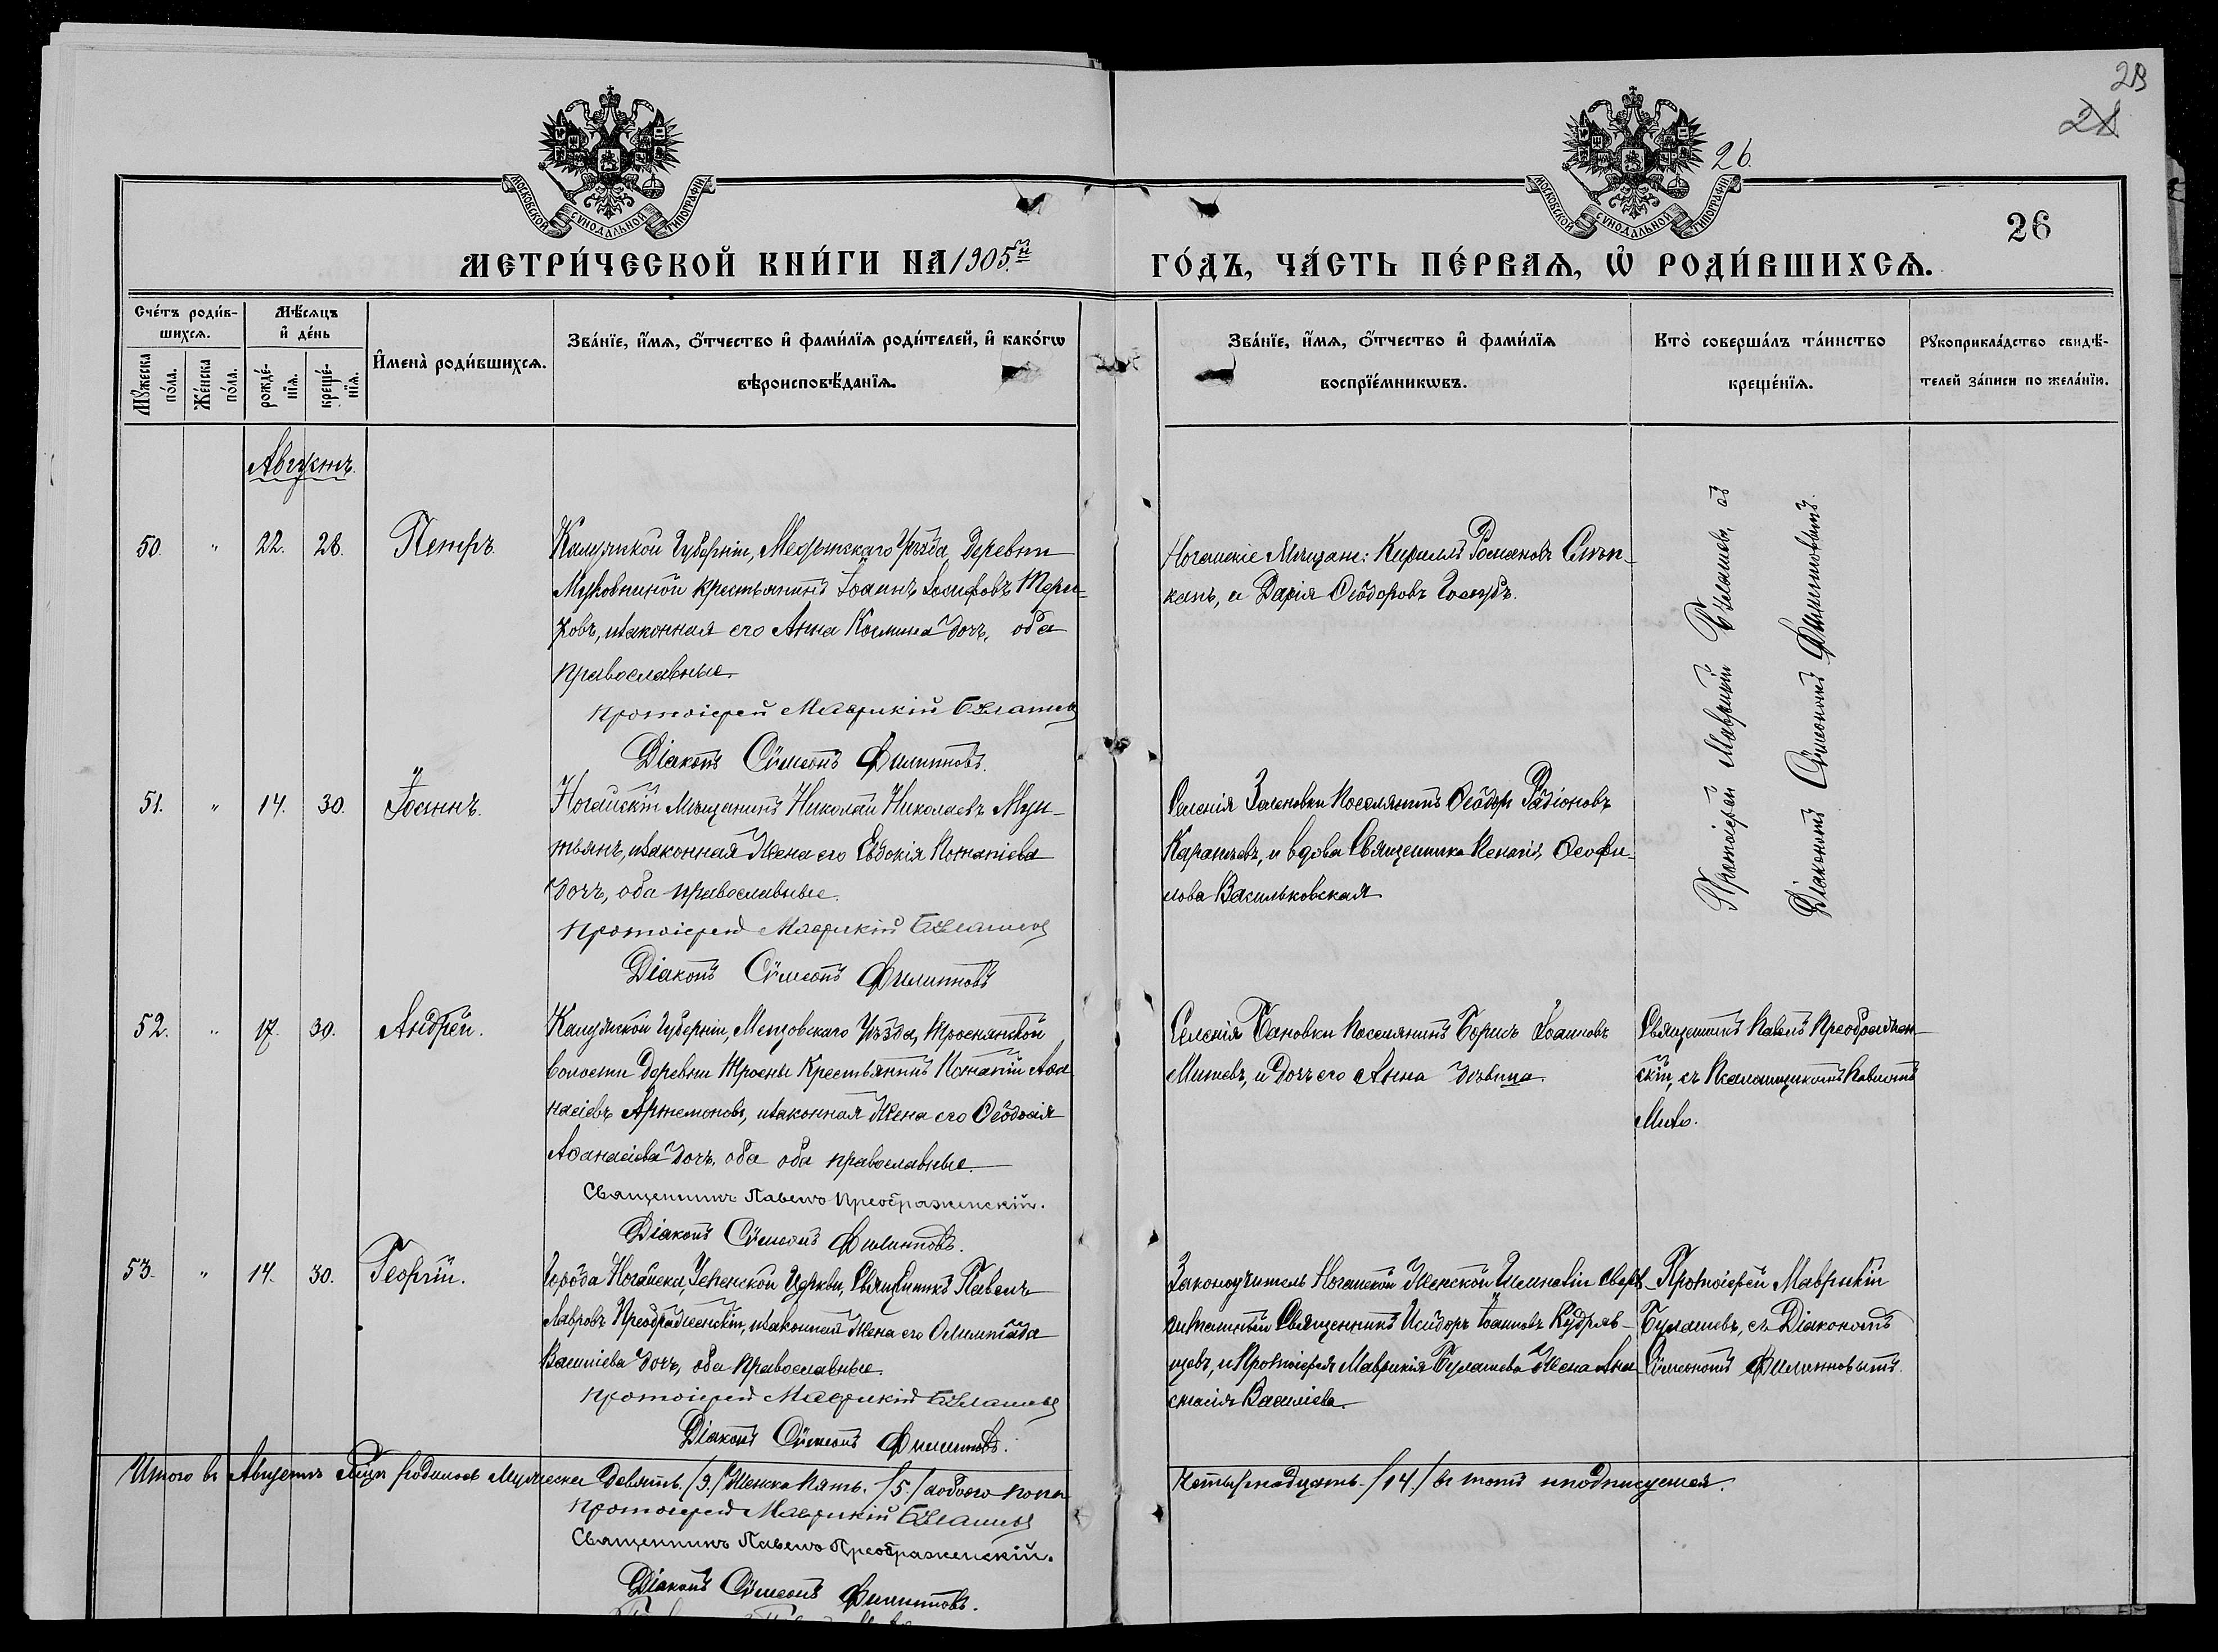 28
28
26.
МОСКОВСКОЙ СѴНОДАЛЬНОЙ ТИПОГРАФІИ
МОСКОВСКОЙ СѴНОДАЛЬНОЙ ТИПОГРАФІИ
26
МЕТРИ́ЧЕСКОЙ КНИ́ГИ НА 1905й
ГО́ДЪ, ЧА́СТЬ ПЕ́РВАѦ, Ѡ҆ РОДИ́ВШИХСѦ.
Сче́тъ роди́в-
шихсѧ.
Мꙋ́жеска по́ла.
Же́нска по́ла.
Мѣ́сѧцъ
и҆ де́нь
рожде́-нїѧ.
креще́-нїѧ.
И҆мена̀ роди́вшихсѧ.
Зва́нїе, и҆́мѧ, ѻ҆́тчество и҆ фами́лїѧ роди́телей, и҆ како́гѡ
вѣроисповѣ́данїѧ.
Зва́нїе, и҆́мѧ, ѻ҆́тчество и҆ фами́лїѧ
воспрїе́мникѡвъ.
Кто̀ соверша́лъ та́инство
креще́нїѧ.
Рꙋкоприкла́дство свидѣ́-
телей за́писи по жела́нїю.
Августъ.
50. " 22. 28. Петръ.
Калужской Губерніи, Медынскаго Уѣзда Деревни
крестьянинъ Іоаннъ Іосифовъ Тери-
ховъ, и законная его Анна Космина дочь, оба
православные.
Протоіерей Маврикій Булашев
Діаконъ Сѷмеонъ Филипповъ.
Ногайскіе Мѣщане: Кириллъ Романовъ
и Дарія Ѳеодоровъ
Протоіерей Маврикій Булашевъ, съ
Діакономъ Сѷмеономъ Филипповымъ.
51. " 14. 30. Іоаннъ.
Ногайскій Мѣщанинъ Николай Николаевъ Мун-
тьянъ, и законная жена его Евдокія Потапіева
дочь, оба православные.
Протоіерей Маврикій Булашев
Діаконъ Сѷмеонъ Филипповъ
Селенія Зеленовки Поселянинъ Ѳеодоръ Радіоновъ
и вдова Священника Ѳеофи-
лова Васильковская
52. " 17. 30. Андрей.
Калужской Губерніи, Мещовскаго Уѣзда, Троснянской
волости деревни Тросны Крестьянинъ Потапій Аѳа
насіевъ Артемоновъ, и законная жена его Ѳеодосія
Аѳанасіева дочь, оба оба православные.
Священникъ Павелъ Преображенскій.
Діаконъ Сѷмеонъ Филипповъ.
Селенія Бановки Поселянинъ Борисъ Іоанновъ
Митевъ, и дочь его Анна дѣвица.
Священникъ Павелъ Преображен-
скій, съ Псаломщикомъ Павломъ
53. " 14. 30. Георгій.
Города Ногайска, Успенской Церкви, Священникъ Павелъ
Лавровъ Преображенскій, и законная жена его Олимпіада
Василіева дочь, оба православные.
Протоіерей Маврикій Булашевъ
Діаконъ Сѷмеонъ Филипповъ.
Законоучитель Ногайской Женской Гимназіи сверх
штатный Священникъ Исидоръ Іоанновъ Кудряв-
цевъ, и Протоіерея Маврикія Булашева жена Ана
стасія Василіева.
Протоіерей Маврикій
Булашевъ, съ Діакономъ
Сѷмеономъ Филипповымъ.
Итого въ Августѣ мѣсяцѣ родилось Мужеска Девять. /9./ Женска Пять. /5./ обоего пола
Четырнадцать. /14./ въ томъ и подписуемся.
Протоіерей Маврикій Булашев
Священникъ Павелъ Преображенскій.
Діаконъ Сѷмеонъ Филипповъ.